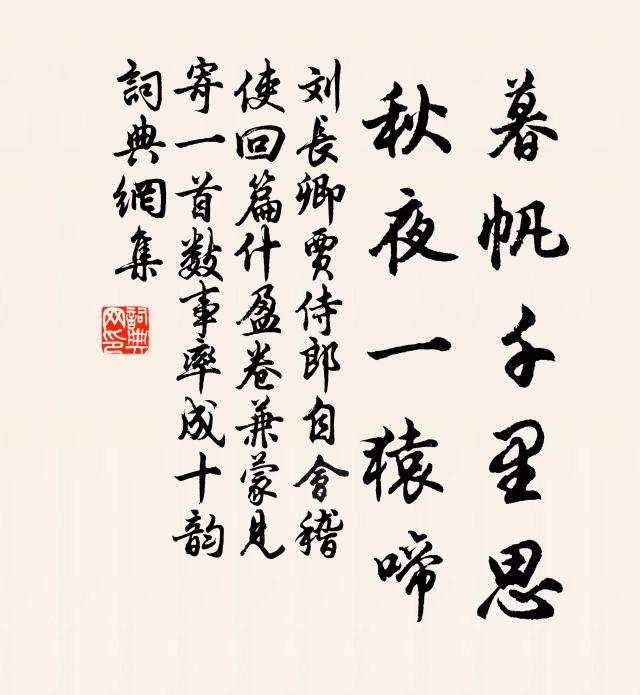 暮帆千里思
秋夜一猿啼
刘長卿賈侍郎自會稽
使回篇什盈卷兼蒙見
寄一首数事率成十韵
詞典網集
詞典网印